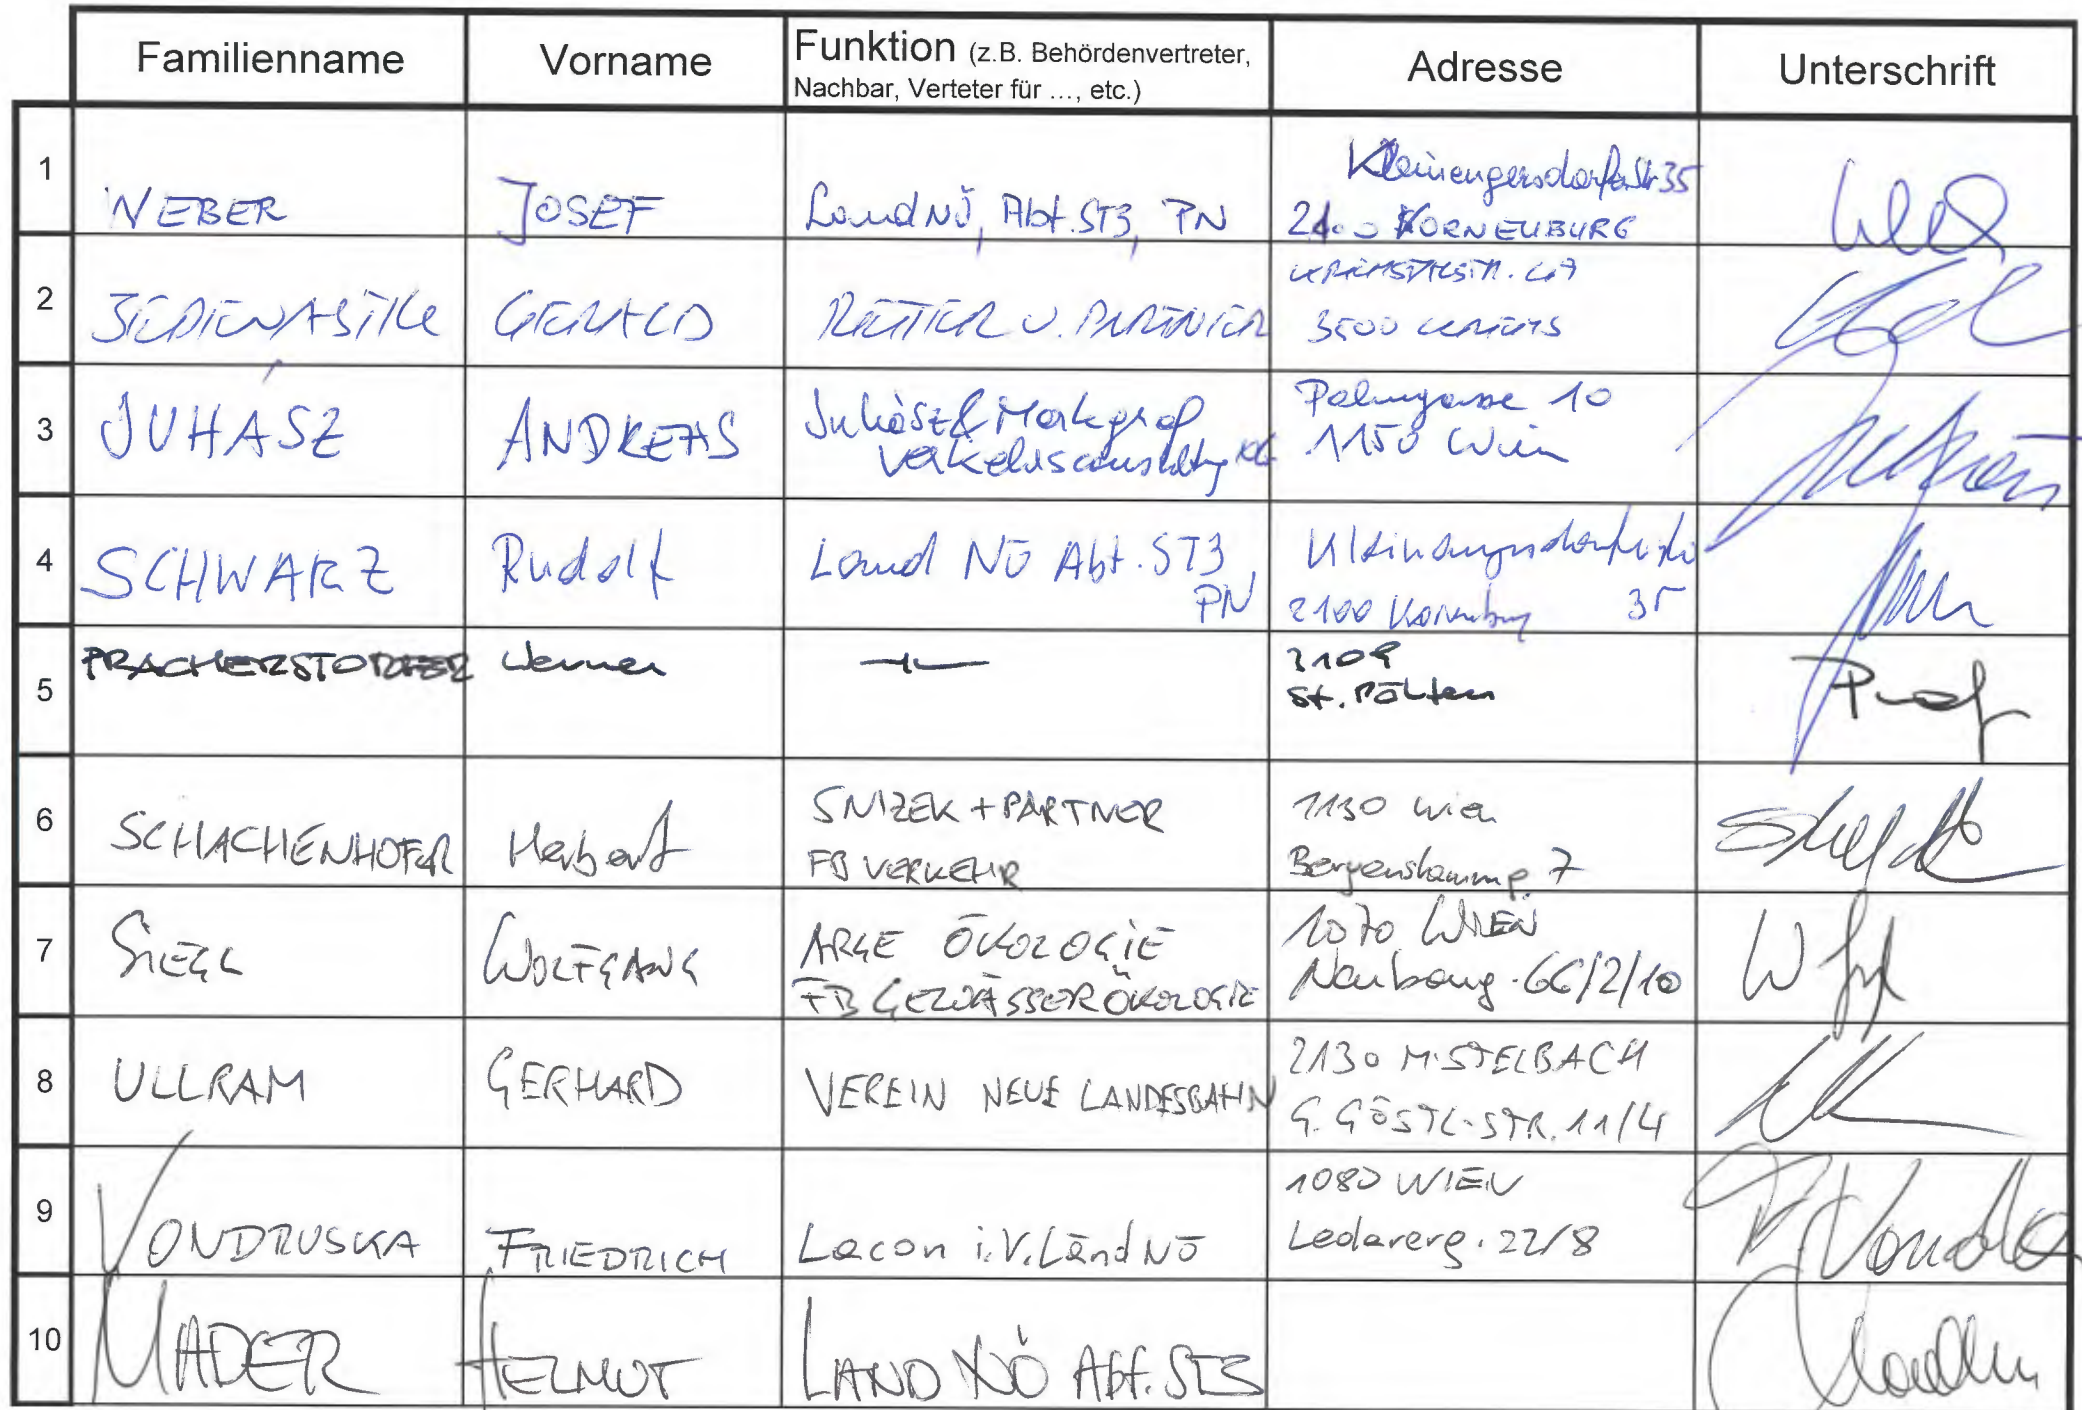 Familienname Vorname Funktion (z.B. Behördenvertreter, Nachbar, Verteter für ..., etc.) Adresse Unterschrift
1 WEBER JOSEF Land NÖ, Abt. ST3, PN Kleinengersdorferstr 35
2100 KORNEUBURG
2 GERALD RETTER U. PARTNER
3500 KREMS
3 JUHÁSZ ANDREAS Juhász & Markgraf Palmgasse 10
Verkehrsconsulting KG 1150 Wien
4 SCHWARZ Rudolf Land NÖ Abt. ST3, Kleinengersdorferstr
PN 2100 Korneuburg 35
5 PRACHERSTORFER Werner —"— 3109
St. Pölten
6 SCHACHENHOFER Herbert SNIZEK + PARTNER 1130 Wien
FB VERKEHR Bergenstammg. 7
7 SIEGL WOLFGANG ARGE ÖKOLOGIE 1070 WIEN
FB GEWÄSSERÖKOLOGIE Neubaug. 66/2/10
8 ULLRAM GERHARD VEREIN NEUE LANDESBAHN 2130 MISTELBACH
G. GÖSTL-STR. 11/4
9 VONDRUSKA FRIEDRICH Lacon i.V. Land NÖ 1080 WIEN
Ledererg. 22/8
10 MADER HELMUT LAND NÖ Abt. ST3